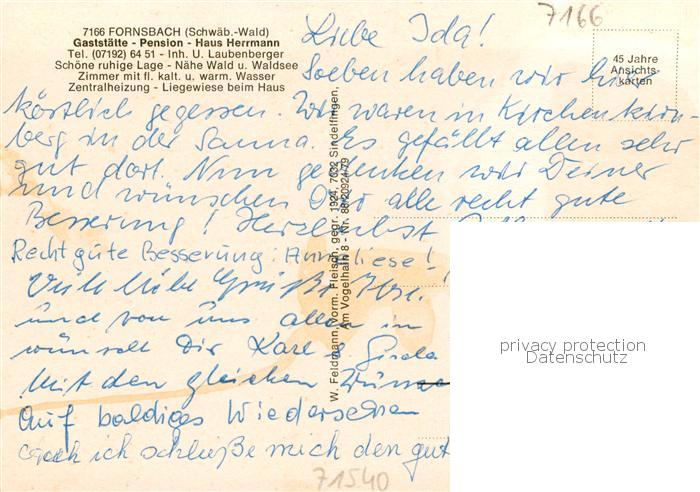 7166
7166 FORNSBACH (Schwäb.-Wald)
Gaststätte - Pension - Haus Herrmann
Tel. (07192) 64 51 - Inh. U. Laubenberger
Schöne ruhige Lage - Nähe Wald u. Waldsee
Zimmer mit fl. kalt. u. warm. Wasser
Zentralheizung - Liegewiese beim Haus
45 Jahre
Ansichts-
karten
Liebe Ida!
Soeben haben wir hier
köstlich gegessen. Wir waren in Kirchenkirn-
berg in der Sauna. Es gefällt allen sehr
gut dort. Nun gedenken wir Deiner
und wünschen Dir alle recht gute
Besserung! Herzlichst
Recht gute Besserung: Anneliese!
Viele liebe Grüße
und von uns allen
wünscht Dir Karl u. Gisela
Mit den gleichen
Auf baldiges Wiedersehen
auch ich schließe mich den gut
71540
W. Feldmann, vorm. Fleisch, gegr. 1924, 7032 Sindelfingen,
Am Vogelhain 8 - Nr. 88 20924/79
privacy protection
Datenschutz